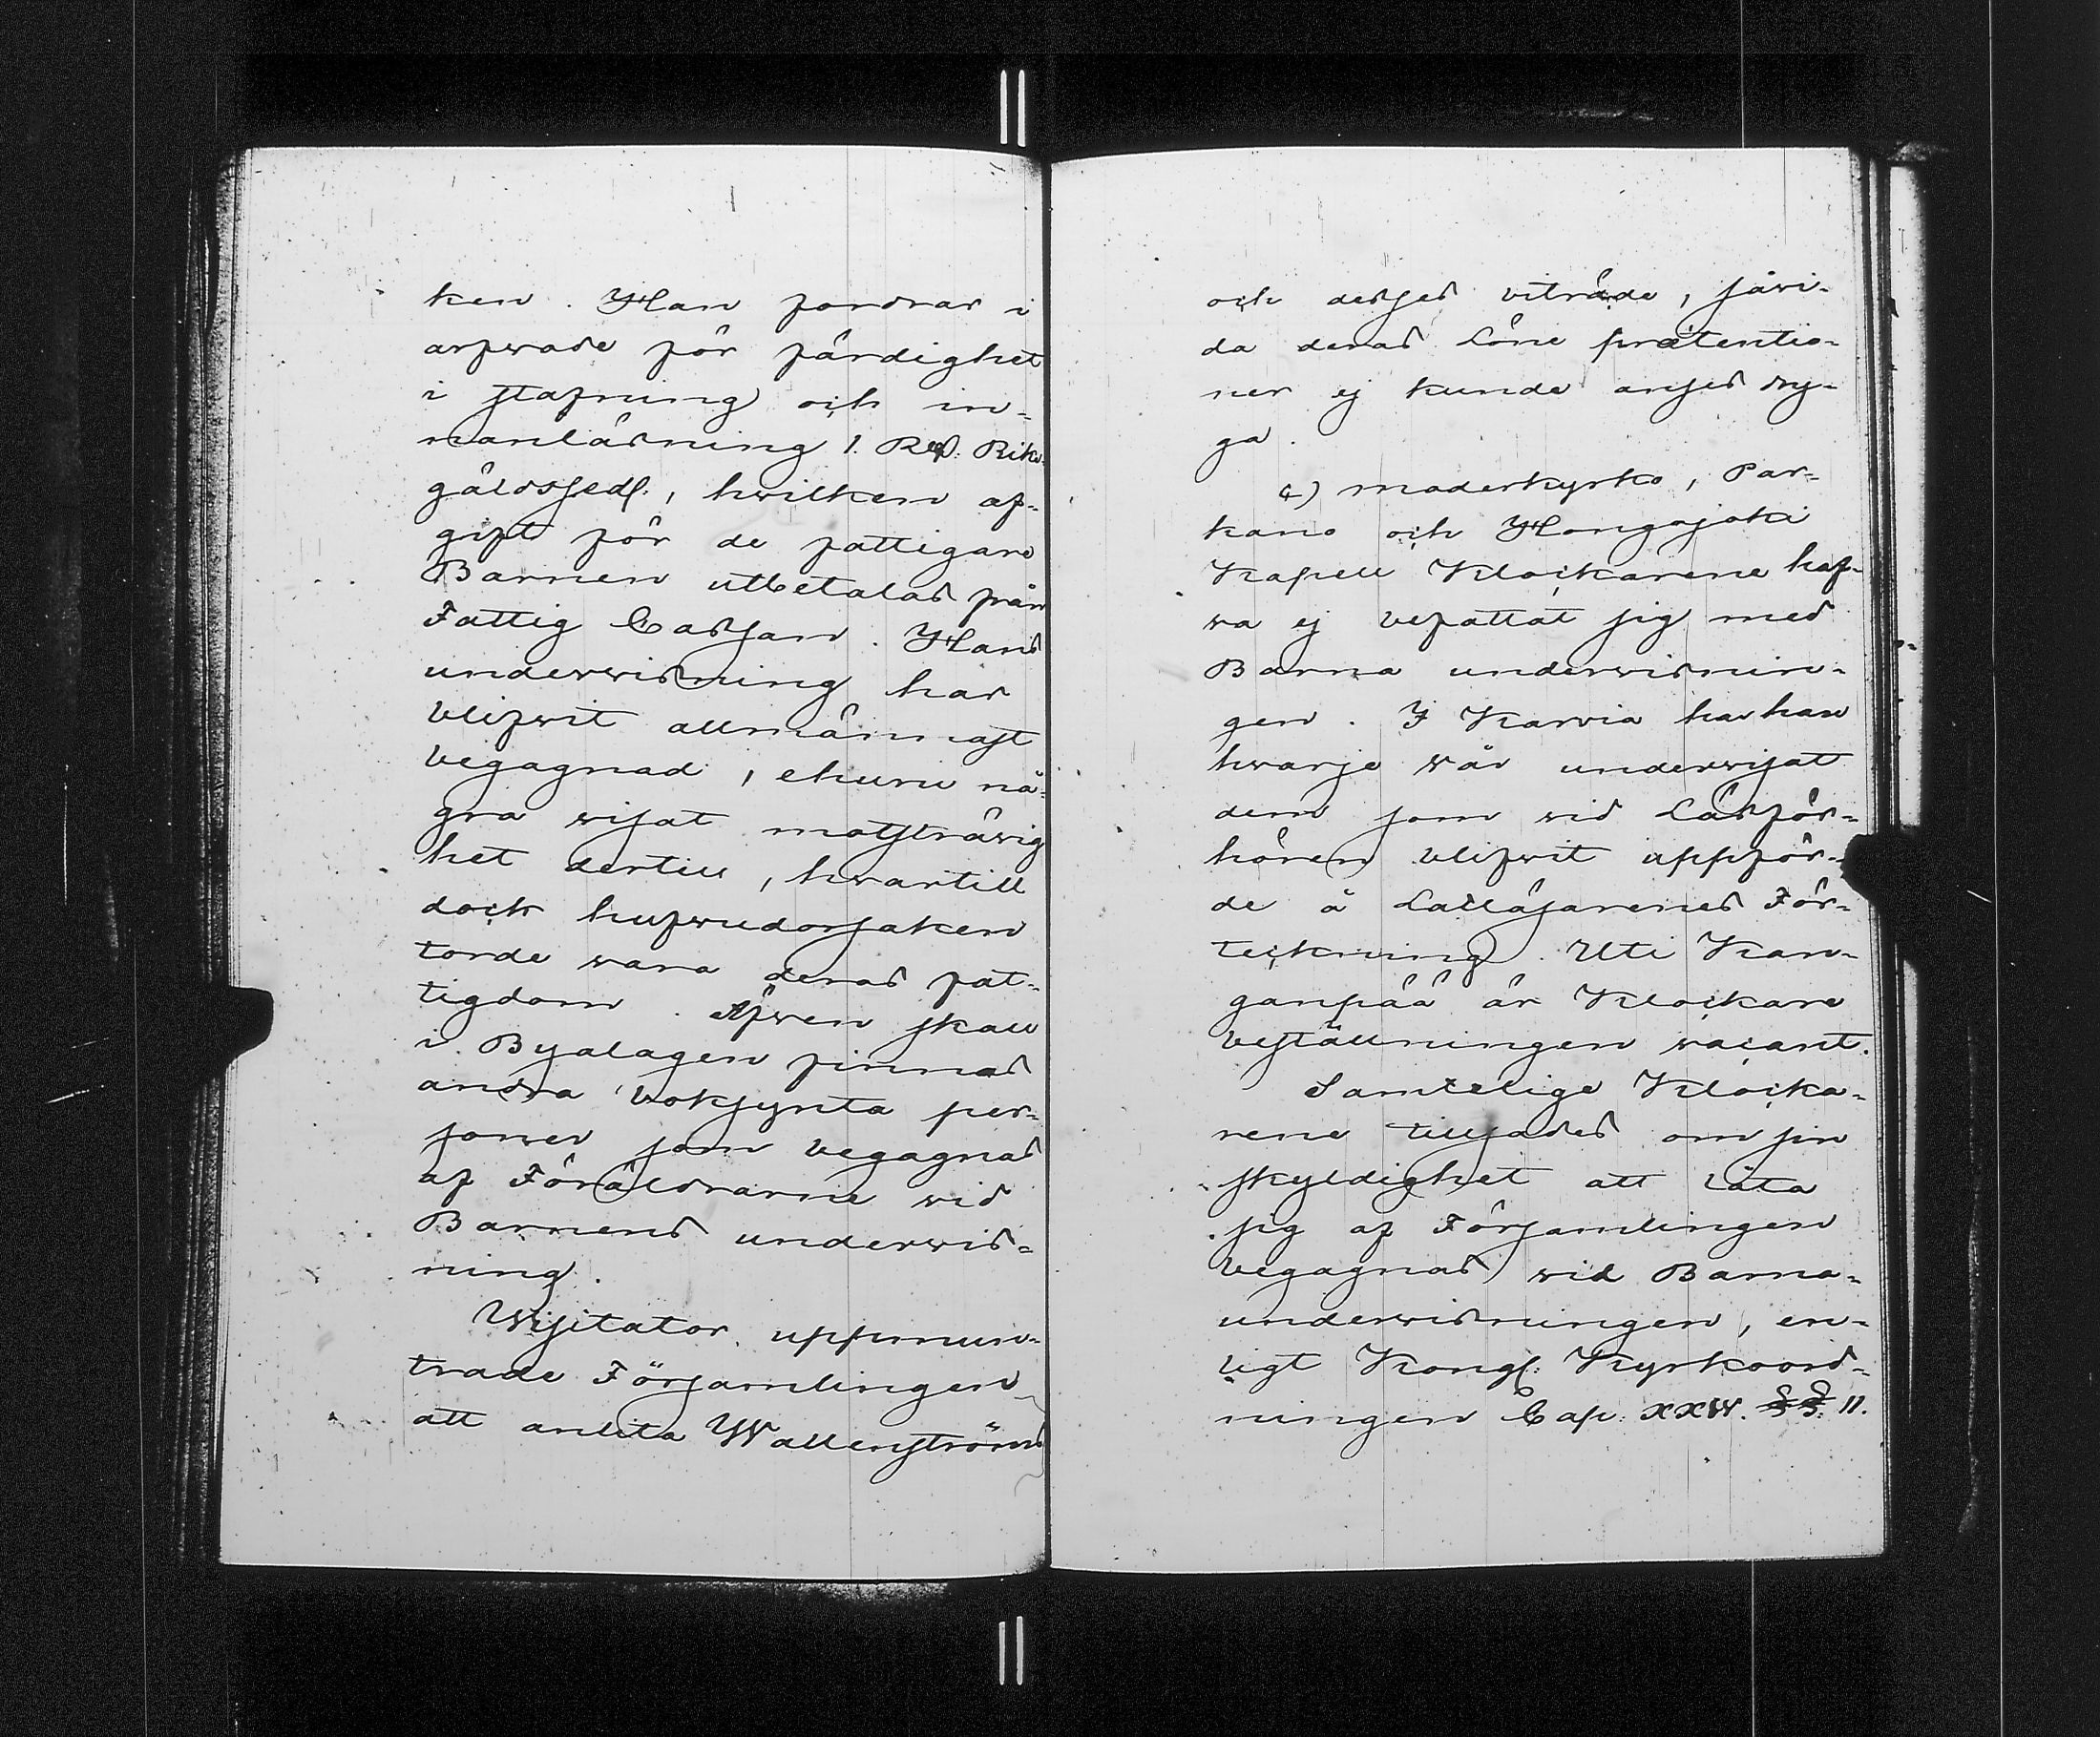 ken. Han fordrar i
arfwode för färdighet
i stafning och in-
nanläsning 1. Rd. Riks-
gäldssedl., hwilken af-
gift för de fattigare
Barnen utbetalas från
Fattig Cassan. Hans
underwisning har
blifwit allmännast
begagnad, ehuru nå-
gra wisat motsträwig
het dertill, hwartill
dock hufwudorsaken
torde wara deras fat-
tigdom. Äfwen skall
i Byalagen finnas
andra boksynta per-
soner som begagnas
af Föräldrarne wid
Barnens underwis-
ning.
Wisitator uppmun-
trade Församlingen
att anlita Wallenströms
och desses biträde, såwi-
da deras löne prætentio-
ner ej kunde anses dry-
ga.
c) Moderkyrko, Par-
kano och Hongojoki
Kapell Klockarene haf-
wa ej befattat sig med
Barna underwisnin-
gen. I Karvia har han
hwarje wår underwisat
dem som wid Läsför-
hören blifwit uppför-
de å Lattläsarenes För-
teckning. Uti Kan-
ganpää är Klockare
beställningen vacant.
Samtelige Klocka-
rene tillsades om sin
skyldighet att låta
sig af Församlingen
begagnas wid Barna-
underwisningen, en-
ligt Kongl. Kyrkoord-
ningen Cap. XXIV. §§. 11.